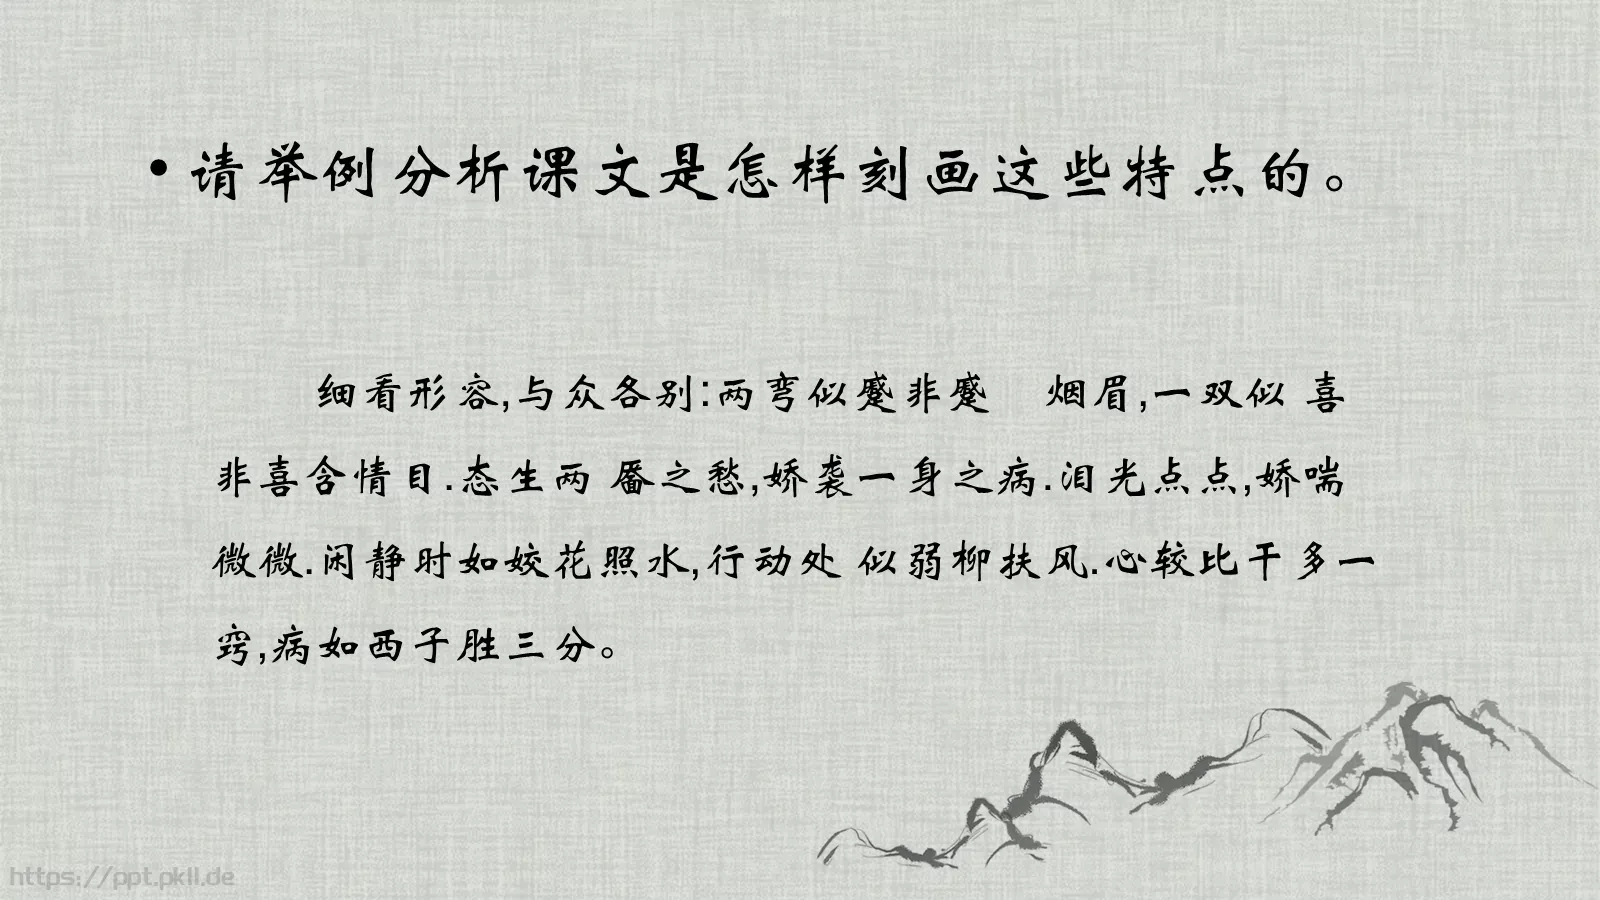 • 请举例分析课文是怎样刻画这些特点的。
细看形容,与众各别:两弯似蹙非蹙 烟眉,一双似 喜
非喜含情目.态生两 靥之愁,娇袭一身之病.泪光点点,娇喘
微微.闲静时如姣花照水,行动处 似弱柳扶风.心较比干多一
窍,病如西子胜三分。
https://ppt.pkll.de